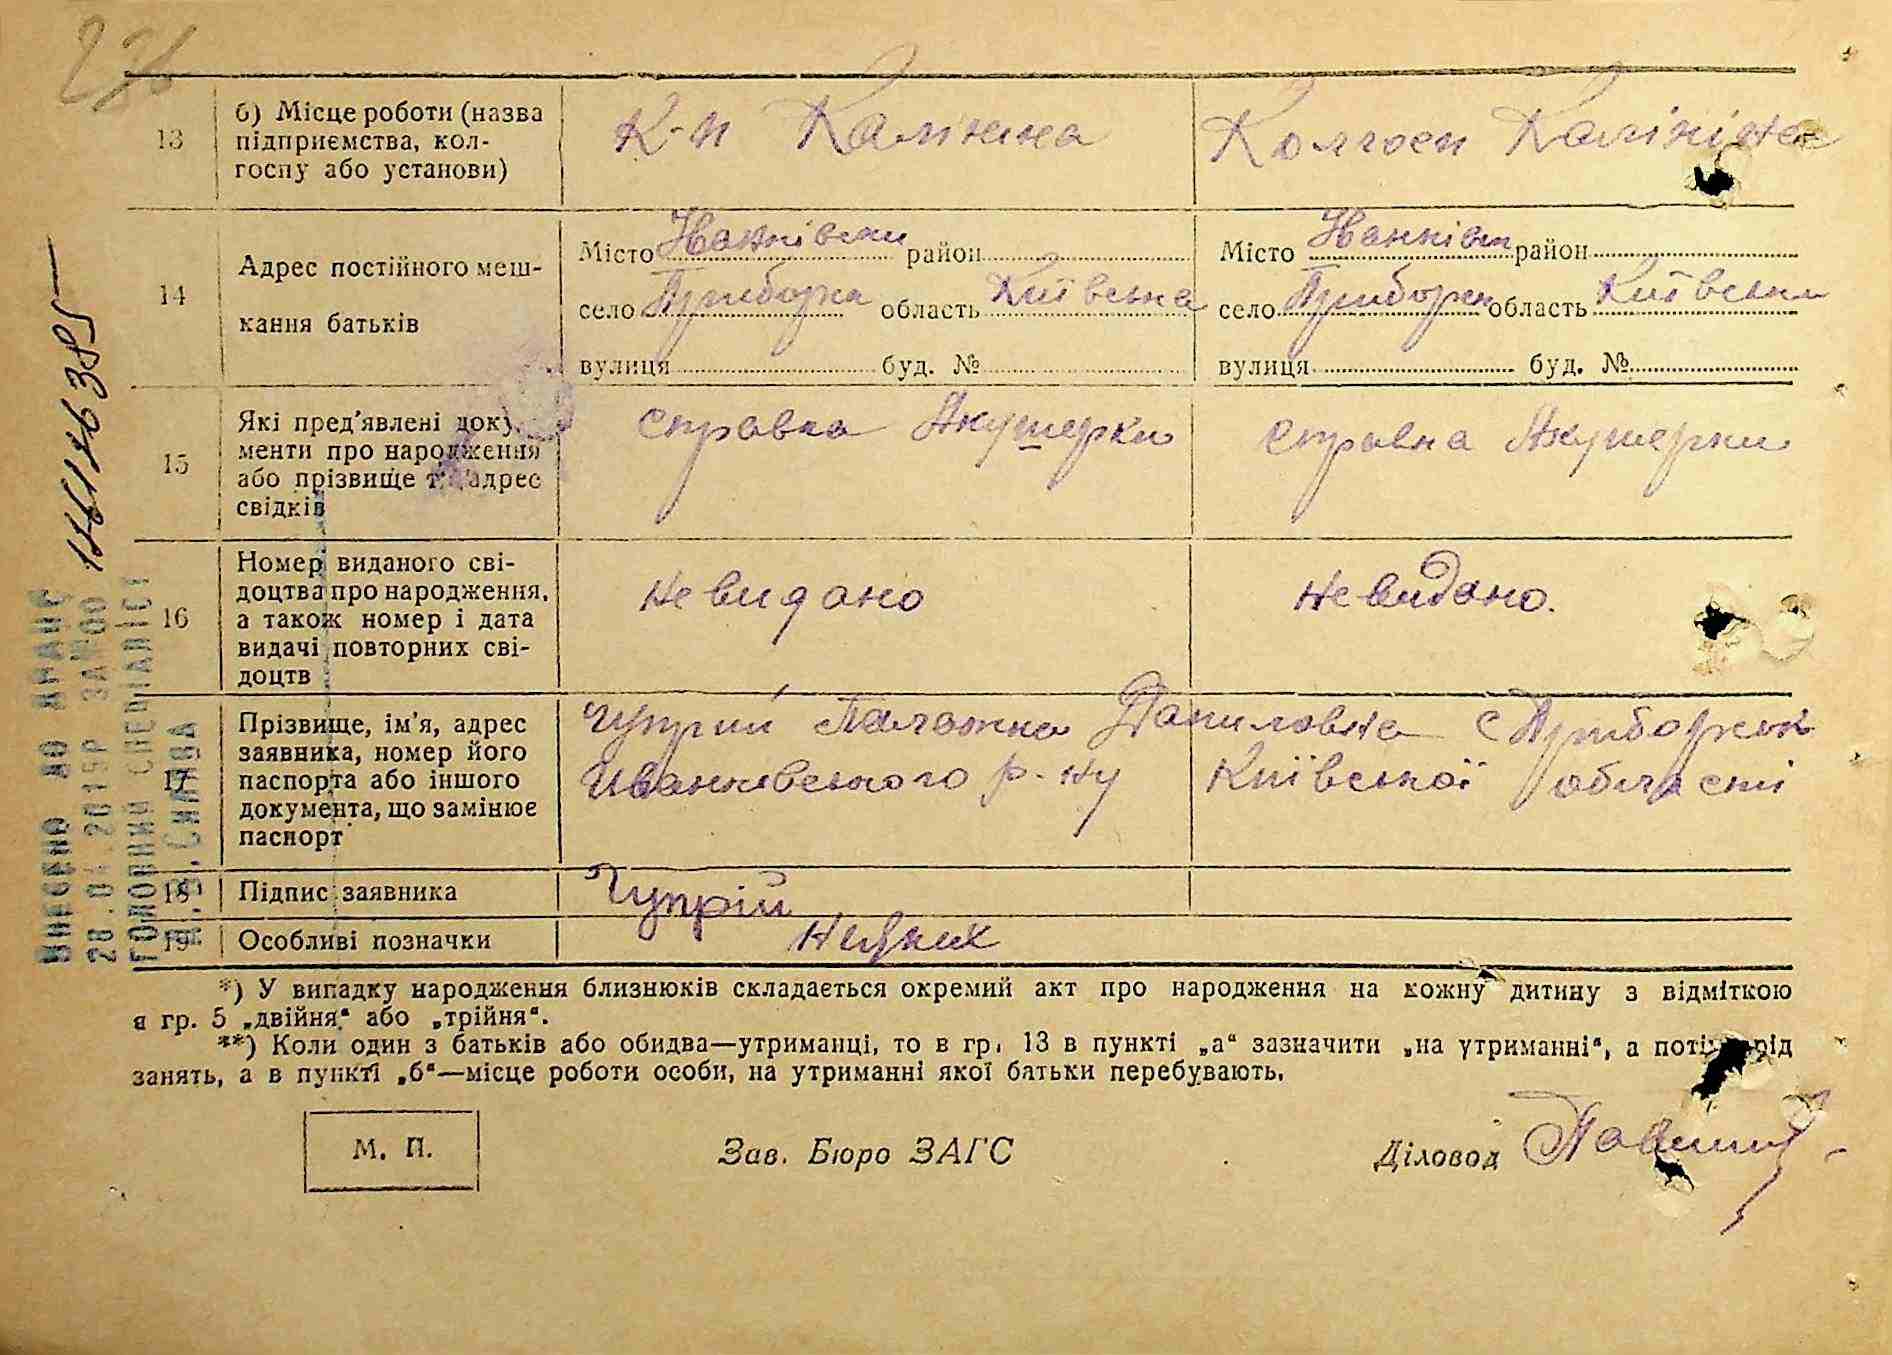 236
13 б) Місце роботи (назва підприємства, кол-госпу або установи) К-п Калініна Колгосп Калініна
14 Адрес постійного меш-кання батьків
Місто Іванківськ район Місто Іванківськ район
село Приборск область Київська село Приборск область Київська
вулиця буд. № вулиця буд. №
15 Які пред'явлені доку-
менти про народження
або прізвище та адрес
свідків
справка Акушерки справка Акушерки
16 Номер виданого сві-
доцтва про народження,
а також номер і дата
видачі повторних сві-
доцтв
Не видано Не видано.
17 Прізвище, ім'я, адрес
заявника, номер його
паспорта або іншого
документа, що замінює
паспорт
Чупрій Палажка Даниловна с Приборськ
Іванківського р-ну Київської області
18 Підпис заявника Чупрій
19 Особливі позначки Ніяких
*) У випадку народження близнюків складається окремий акт про народження на кожну дитину з відміткою
в гр. 5 „двійня“ або „трійня“.
**) Коли один з батьків або обидва—утриманці, то в гр. 13 в пункті „а“ зазначити „на утриманні“, а потім рід
занять, а в пункті „б“—місце роботи особи, на утриманні якої батьки перебувають.
М. П. Зав. Бюро ЗАГС Діловод
ВНЕСЕНО ДО ДРАЦС
2019Р ЗА №00
ГОЛОВНИЙ СПЕЦІАЛІСТ